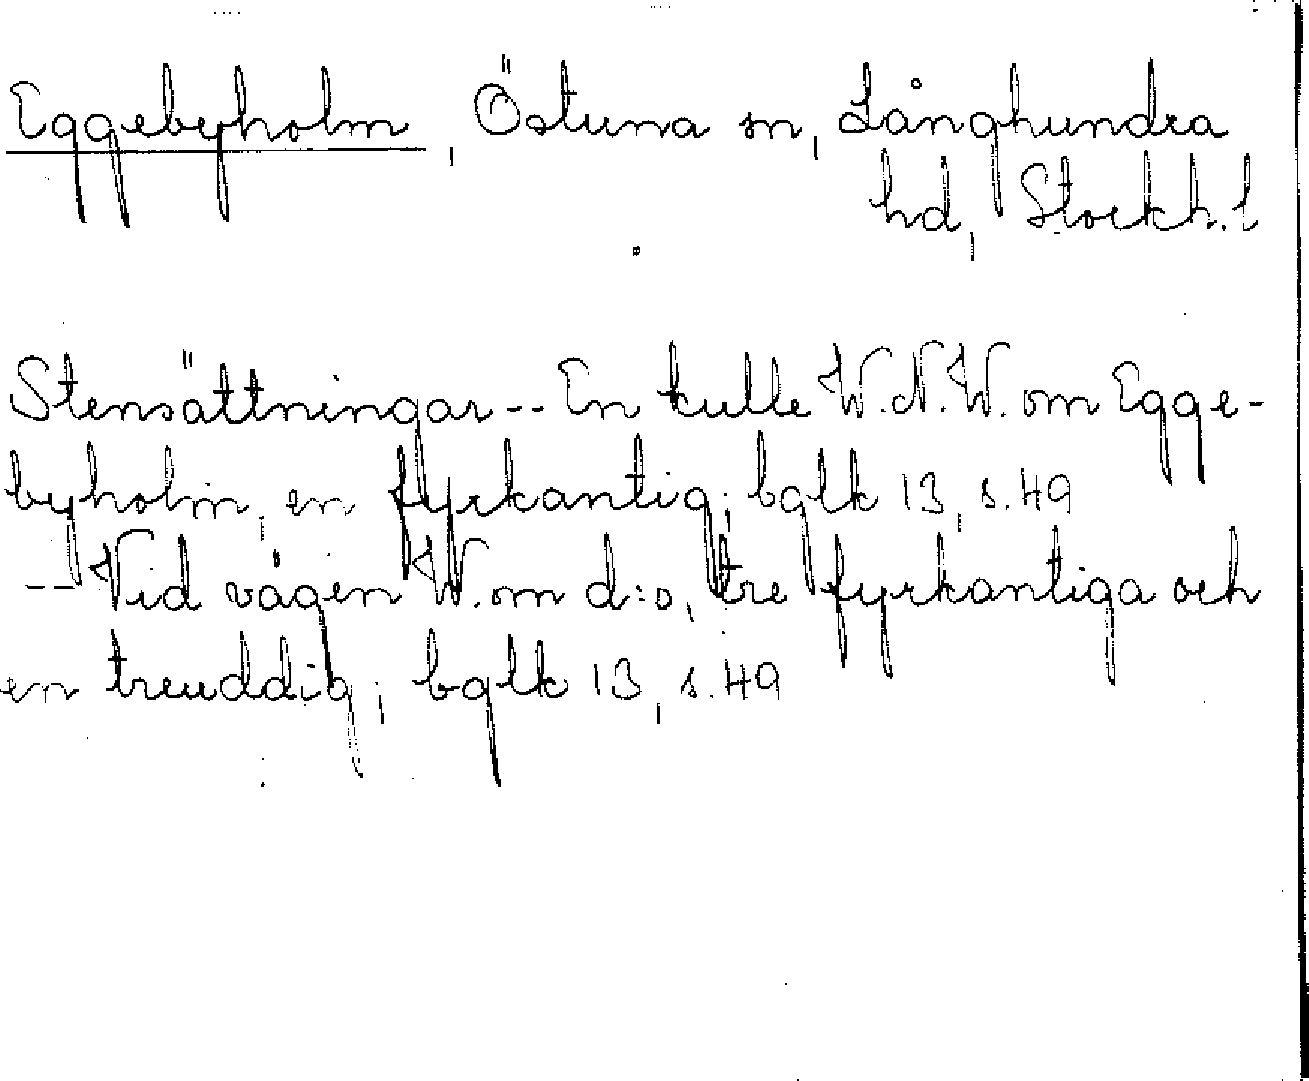 Eggebyholm, Östuna sn, Långhundra
hd, Stockh. l
Stensättningar -- En kulle V.N.V. om Egge-
byholm, en fyrkantig; bglk 13, s. 49
-- Vid vägen V. om d:o, tre fyrkantiga och
en treuddig; bglk 13, s. 49